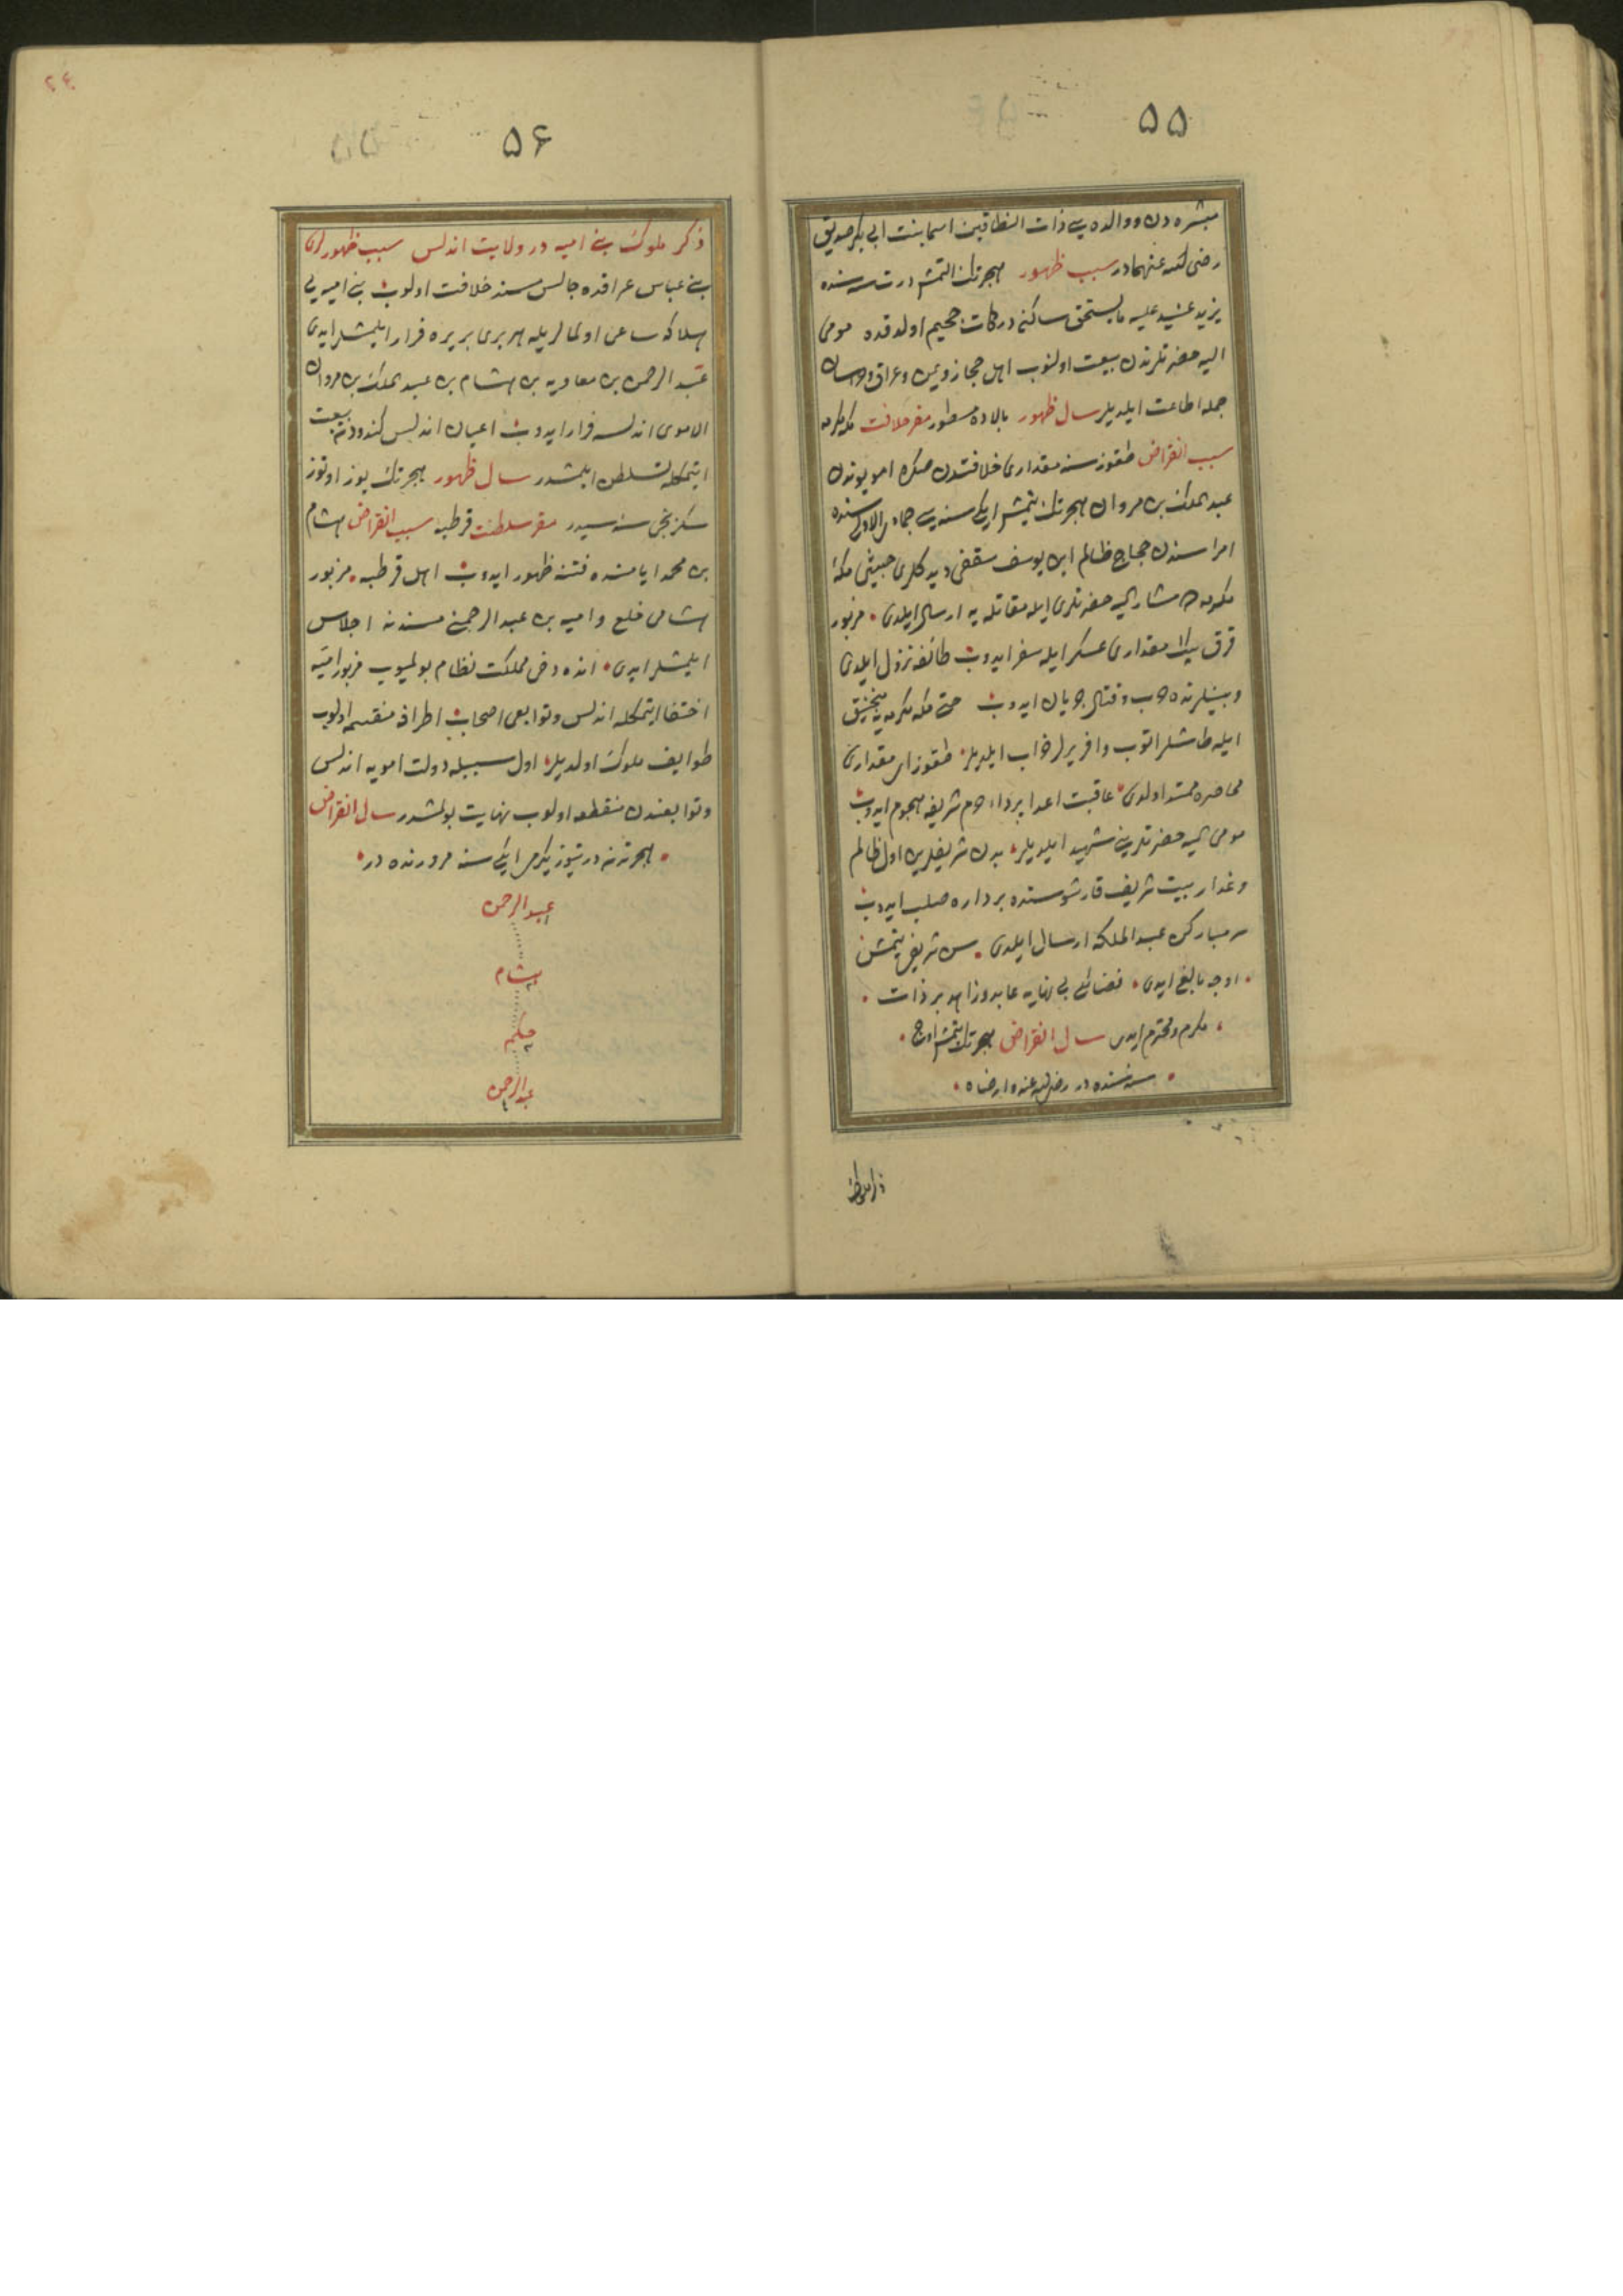 ۵۵
مبشره دن و والده سی ذات النطاقین اسما بنت ابی بکر صدیق
رضی الله عنهمادر سبب ظهور هجرتك التمش درت سنه سنده
یزید عنید علیه ما یستحق ساکن درکات جحیم اولدقده مومی
الیه حضرتلرندن بیعت اولنوب اهل حجاز و یمن و عراق و خراسان
جمله اطاعت ایلدیلر سال ظهور بالاده مسطور مقر خلافت مکه مکرمه
سبب انقراض طقوز سنه مقداری خلافتدن صکره امویوندن
عبد الملك بن مروان هجرتك یتمش ایکی سنه سی جمادی الاولی سنده
امراسندن حجاج ظالم ابن یوسف سقفی دیدکلری خبیثی مکهٔ
مکرمه ده مشار الیه حضرتلری ایله مقاتله یه ارسال ایلدی مزبور
قرق بیك مقداری عسکر ایله سفر ایدوب طائفه نزول ایلدی
و بینلرنده حرب و قتال جریان ایدوب حتی مکه مکرمه یه منجنیق
ایله طاشلر اتوب وافر یرلر خراب ایلدیلر طقوز ای مقداری
محاصره ممتد اولدی عاقبت اعدا حرم شریفه هجوم ایدوب
مومی الیه حضرتلرینی شهید ایلدیلر بدن شریفلرین اول ظالم
و غدار بیت شریف قارشوسنده بر داره صلب ایدوب
سر مبارکن عبد الملکه ارسال ایلدی سن شریفی یتمش
اوچه بالغ ایدی فضائلی بی نهایه عابد و زاهد بر ذات
مکرم و محترم ایدی سال انقراض هجرتك یتمش اوچ
سنه سنده در رضی الله عنه و ارضاه
ذکر ملوك
۲۴
۵۶
ذکر ملوك بنی امیه در ولایت اندلس سبب ظهورلری
بنی عباس عراقده جالس مسند خلافت اولوب بنی امیه یی
هلاکه ساعی اولمالریله هر بری بر یره فرار ایلمشلر ایدی
عبد الرحمن بن معاویه بن هشام بن عبد الملك بن مروان
الاموی اندلسه فرار ایدوب اعیان اندلس کندودنه بیعت
ایتمکله تسلطن ایلمشدر سال ظهور هجرتك یوز اوتوز
سکزنجی سنه سیدر مقر سلطنت قرطبه سبب انقراض هشام
بن محمد ایامنده فتنه ظهور ایدوب اهل قرطبه مزبور
هشامی خلع و امیه بن عبد الرحمنی مسندنه اجلاس
ایلمشلر ایدی انده دخی مملکت نظام بولمیوب مزبور امیه
اختفا ایتمکله اندلس و توابعی اصحاب اطرافه منقسم اولوب
طوایف ملوك اولدیلر اول سببیله دولت امویه اندلس
و توابعندن منقطعه اولوب نهایت بولمشدر سال انقراض
هجرتنه درتیوز یکرمی ایکی سنه مرورنده در
عبد الرحمن
هشام
حکم
عبد الرحمن